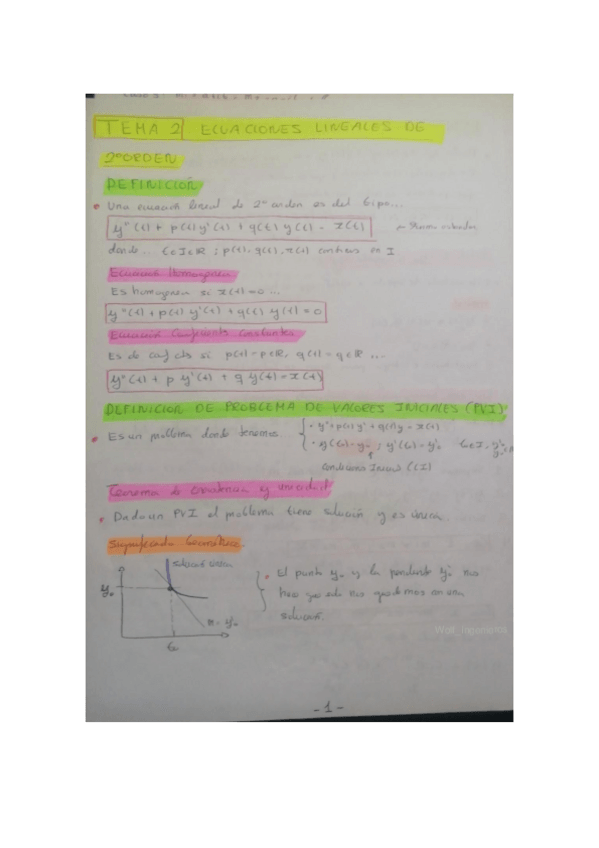 TEMA 2 ECUACIONES LINEALES DE
2º ORDEN
DEFINICIÓN
• Una ecuación lineal de 2º orden es del tipo...
y"(t) + p(t) y'(t) + q(t) y(t) = r(t)
donde... t∈I⊂R ; p(t), q(t), r(t) continuas en I
Ecuación Homogénea
Es homogénea si r(t)=0...
y"(t) + p(t) y'(t) + q(t) y(t) = 0
Ecuación Coeficientes Constantes
Es de coef. cts si p(t)=p∈R, q(t)=q∈R ...
y"(t) + p y'(t) + q y(t) = r(t)
DEFINICIÓN DE PROBLEMA DE VALORES INICIALES (PVI)
• Es un problema donde tenemos
• y"+p(t)y'+q(t)y=r(t)
• y(t₀)=y₀ ; y'(t₀)=y'₀ t₀∈I,
Condiciones Iniciales (CI)
Teorema de existencia y unicidad
• Dado un PVI el problema tiene solución y es única.
Significado Geométrico.
solución única
y₀
m=y'₀
t₀
• El punto y₀ y la pendiente y'₀ nos
hace que solo nos quedemos con una
solución.
Wolf_laperrisima
-1-